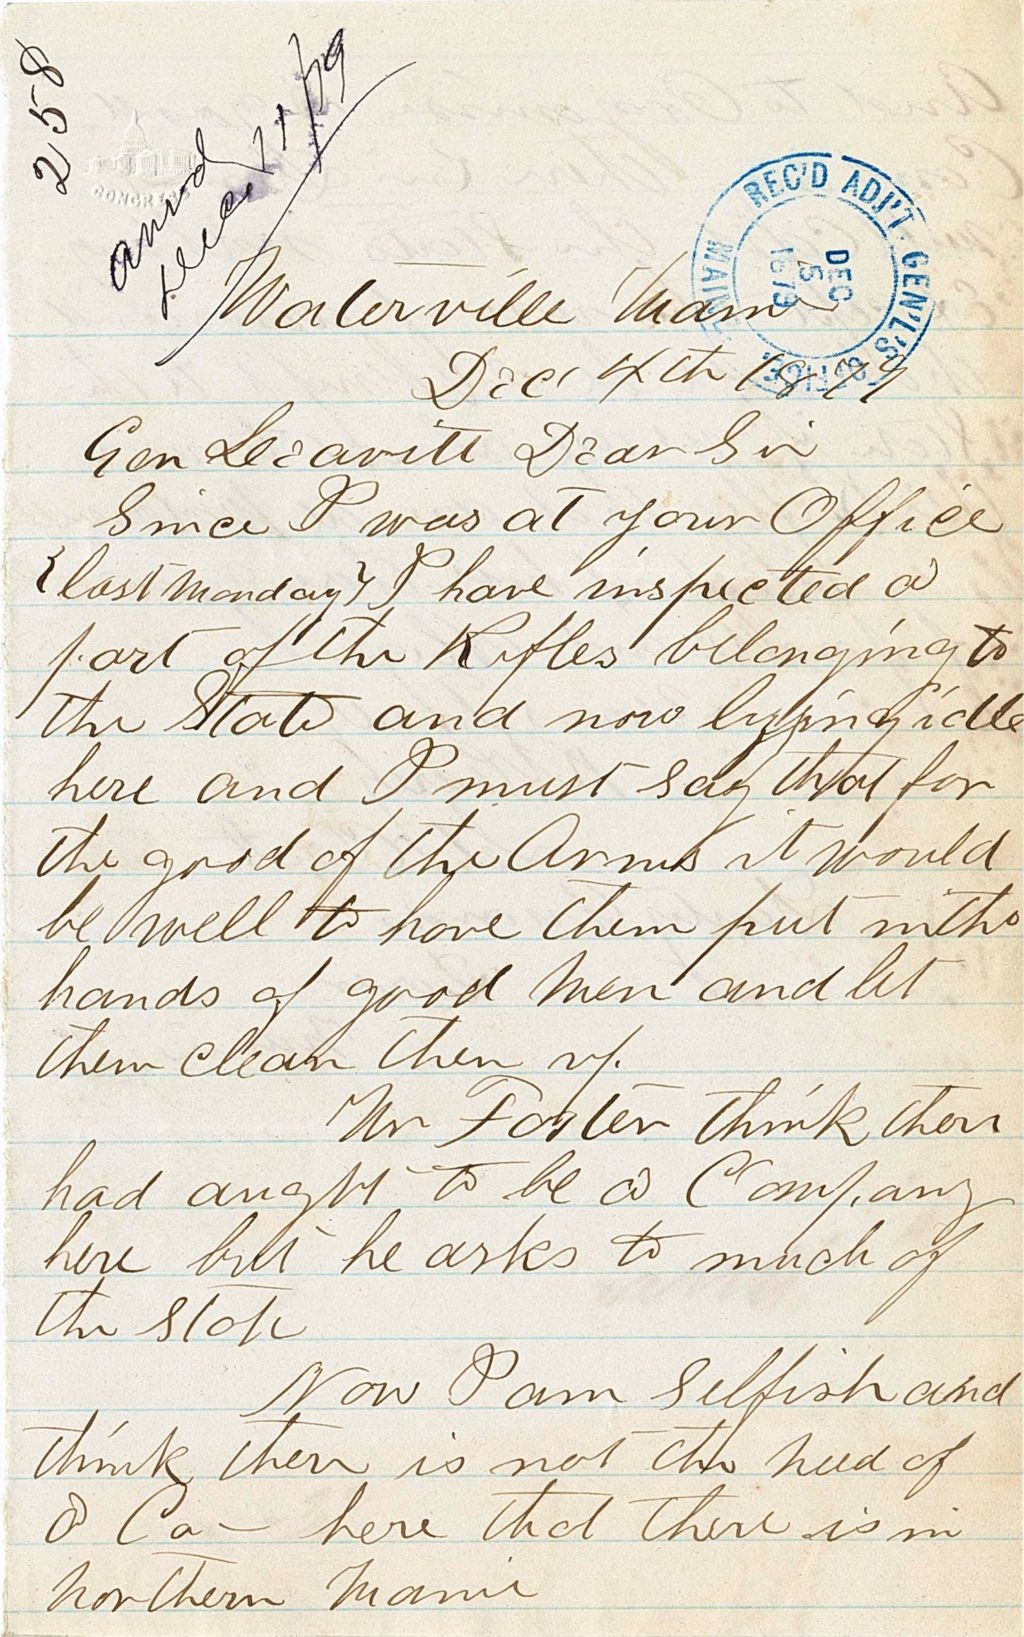 258
CONGRESS
ansrd
Dec. 11/79
REC'D ADJ'T. GEN'L'S OFFICE,
MAINE
DEC
5
1879
Waterville Maine
Dec 4th 1879
Gen Leavitt Dear Sir
Since I was at your Office
{last Monday} I have inspected a
part of the Rifles belonging to
the State and now lying idle
here and I must say that for
the good of the Arms it would
be well to have them put in the
hands of good Men and let
them clean them up.
Mr Foster think there
had aught to be a Company
here but he asks to much of
the State
Now I am Selfish and
think there is not the need of
a Co - here that there is in
Northern Maine